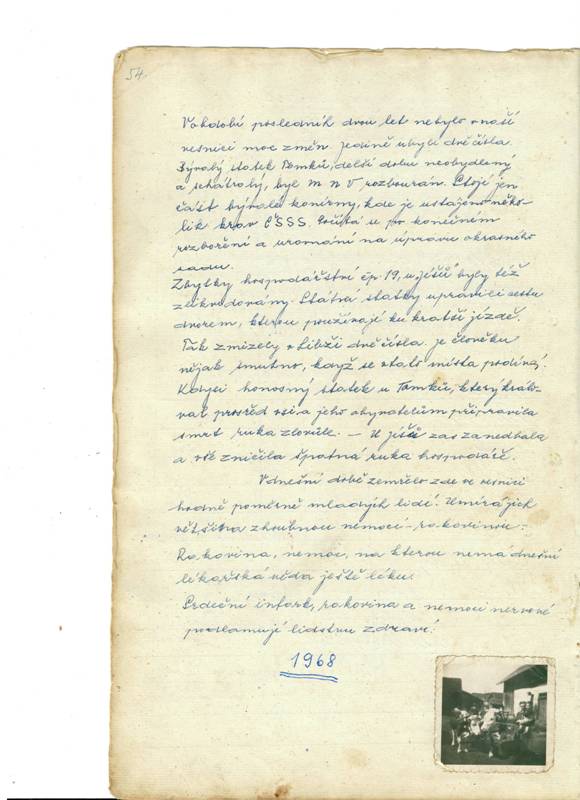 54.
V období posledních dvou let nebylo v naší
vesnici moc změn. Jedině ubyli dvě čísla.
Bývalý statek Tomků, delší dobu neobydlený
a schátralý, byl M n V rozbourán. Stojí jen
část bývalé konírny, kde je ustájeno něko-
lik krav ČSSS. Počítá se po konečném
rozboření a urovnání na úpravu okrasného
sadu.
Zbytky hospodářství čp. 19, u „Jíšů" byly též
zlikvidovány. Státní statky upravili cestu
dvorem, kterou používají ku kratší jízdě.
Tak zmizely v Libži dvě čísla. Je člověku
nějak smutno, když se stálá místa
Kdysi honosný statek u Tomků, který králo-
val prostřed vsi, a jeho obyvatelům připravila
smrt ruka zlovůle. – U Jíšů zas zanedbala
a vše zničila špatná ruka hospodáře.
V dnešní době zemřelo zde ve vesnici
hodně poměrně mladých lidí. Umírá jich
většina zhoubnou nemocí – rakovinou –
Rakovina, nemoc, na kterou nemá dnešní
lékařská věda ještě léku.
Srdeční infark, rakovina a nemoci nervové
podlamují lidstvu zdraví.
1968